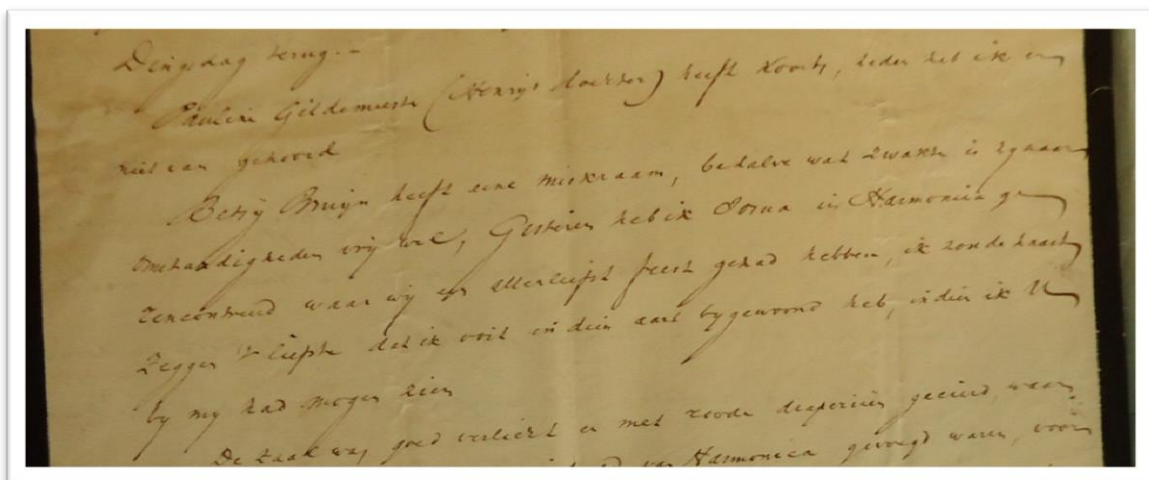 Dingsdag terug.-
Pauline Gildemeester (Henrys dochter) heeft Koorts, heden heb ik er
niet van gehoord
Betsy Bruyn heeft eene miskraam, behalve wat zwakte is zy naar
omstandigheden vrij wel, Gisteren heb ik in Harmonica ge
rencontreerd waar wij een allerliefst feest gehad hebben, ik zoude haast
zeggen 't liefste dat ik ooit in dien aard bygewoond heb, indien ik U
by my had mogen zien
De zaal was goed verlicht en met roode draperien gecierd, waar
van Harmonica gevoegd waren, voor